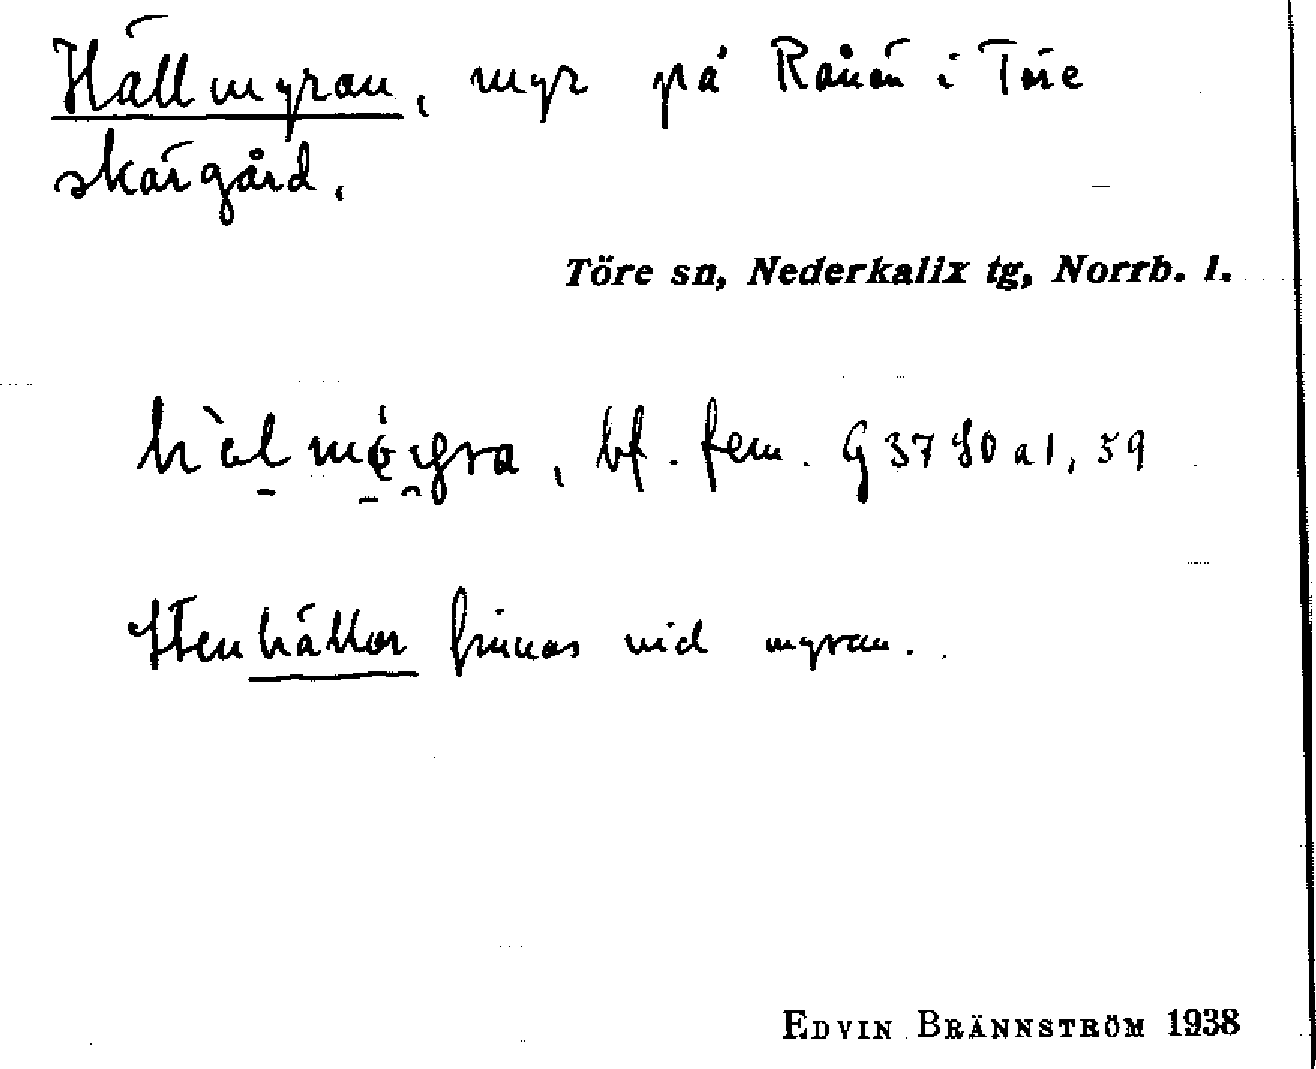 Hällmyran, myr på Rånön i Töre
skärgård.
Töre sn, Nederkalix tg, Norrb. l.
bf. fem. G 3780 a1, 59
Stenhällor finnas vid myran.
EDVIN BRÄNNSTRÖM 1938